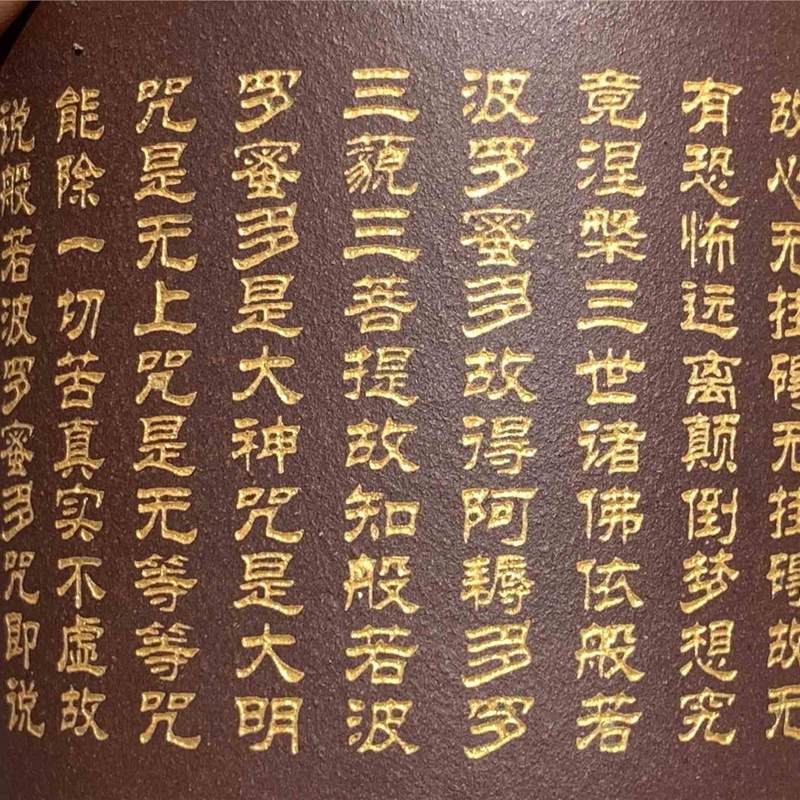 故心无挂碍无挂碍故无
有恐怖远离颠倒梦想究
竟涅槃三世诸佛依般若
波罗蜜多故得阿耨多罗
三藐三菩提故知般若波
罗蜜多是大神咒是大明
咒是无上咒是无等等咒
能除一切苦真实不虚故
说般若波罗蜜多咒即说